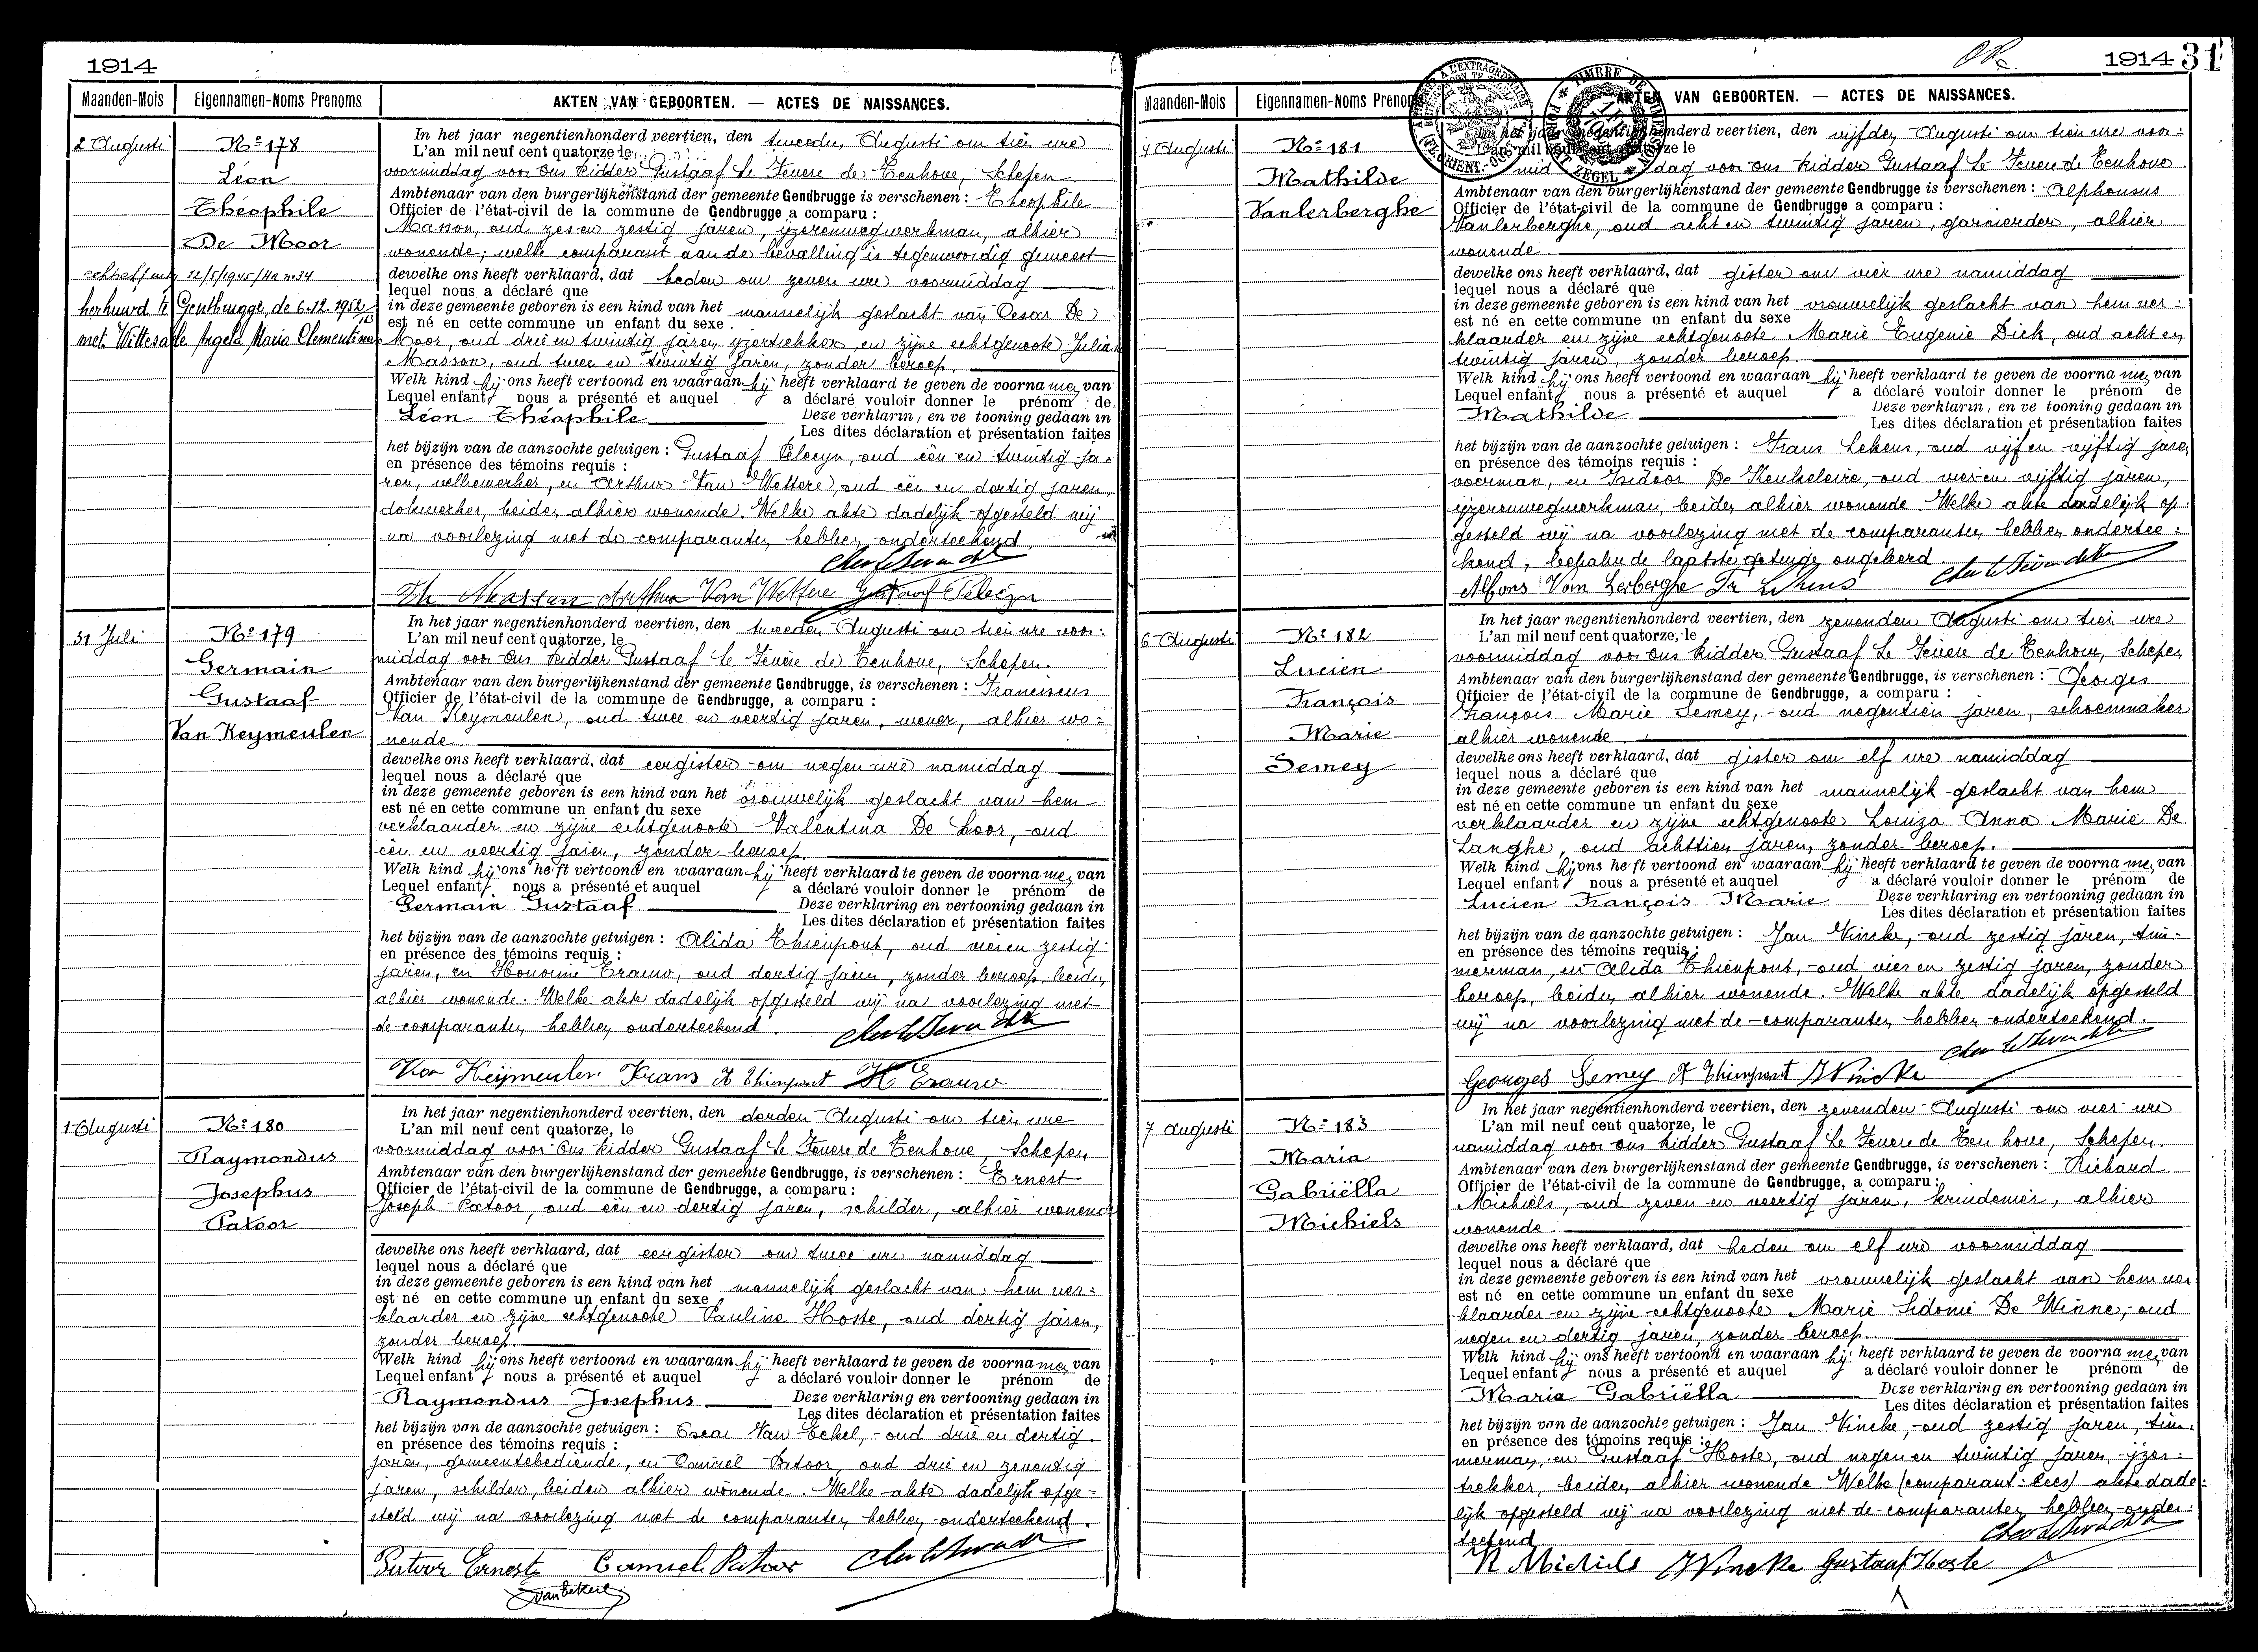 1914
Maanden-Mois Eigennamen-Noms Prenoms AKTEN VAN GEBOORTEN. — ACTES DE NAISSANCES.
2 Augusti
Nº 178
Léon
Théophile
De Moor
echtsch/ 12/5/1945/11a nº 34
herhuwd te Gentbrugge, de 6.12.1952
met Wittesaele Angela Maria Clementina
In het jaar negentienhonderd veertien, den tweeden Augusti om tien ure
L'an mil neuf cent quatorze le
voormiddag voor Ons Ridder Gustaaf Le Fevere de Tenhove, Schepen
Ambtenaar van den burgerlijkenstand der gemeente Gendbrugge is verschenen : Théophile
Officier de l'état-civil de la commune de Gendbrugge a comparu :
Masson, oud zes en zestig jaren, ijzerenwegwerkman, alhier
wonende; welke comparant aan de bevalling is tegenwoordig geweest
dewelke ons heeft verklaard, dat heden om zeven ure voormiddag
lequel nous a déclaré que
in deze gemeente geboren is een kind van het mannelijk geslacht van Cesar De
est né en cette commune un enfant du sexe
Moor, oud drie en twintig jaren, ijzertrekker, en zijne echtgenoote Julia
Masson, oud twee en twintig jaren, zonder beroep.
Welk kind hij ons heeft vertoond en waaraan hij heeft verklaard te geven de voorna men van
Lequel enfant nous a présenté et auquel a déclaré vouloir donner le prénom de
Léon Théophile Deze verklarin, en ve tooning gedaan in
Les dites déclaration et présentation faites
het bijzijn van de aanzochte getuigen : Gustaaf Pelecyn, oud één en twintig ja-
en présence des témoins requis :
ren, velbewerker, en Arthur Van Wettere, oud één en dertig jaren,
dokwerker, beiden alhier wonende. Welke akte dadelijk opgesteld wij
na voorlezing met de comparanten hebben onderteekend.
Th Masson Arthur Van Wettere Gustaaf Pelecyn
31 Juli
Nº 179
Germain
Gustaaf
Van Keymeulen
In het jaar negentienhonderd veertien, den tweeden Augusti om tien ure voor-
L'an mil neuf cent quatorze, le
middag voor Ons Ridder Gustaaf Le Fevere de Tenhove, Schepen.
Ambtenaar van den burgerlijkenstand der gemeente Gendbrugge, is verschenen : Franciscus
Officier de l'état-civil de la commune de Gendbrugge, a comparu :
Van Keymeulen, oud twee en veertig jaren, wever, alhier wo-
nende
dewelke ons heeft verklaard, dat eergisteren om negen ure namiddag
lequel nous a déclaré que
in deze gemeente geboren is een kind van het vrouwelijk geslacht van hem
est né en cette commune un enfant du sexe
verklaarder en zijne echtgenoote Valentina De Loor, oud
één en veertig jaren, zonder beroep.
Welk kind hij ons heeft vertoond en waaraan hij heeft verklaard te geven de voorna men van
Lequel enfant nous a présenté et auquel a déclaré vouloir donner le prénom de
Germain Gustaaf Deze verklaring en vertooning gedaan in
Les dites déclaration et présentation faites
het bijzijn van de aanzochte getuigen : Alida Thienpont, oud vier en zestig
en présence des témoins requis :
jaren, en Honorine Erauw, oud dertig jaren, zonder beroep, beiden
alhier wonende. Welke akte dadelijk opgesteld wij na voorlezing met
de comparanten hebben onderteekend.
Van Keijmeulen Frans A Thienpont H Erauw
1 Augusti
Nº 180
Raymondus
Josephus
Patoor
In het jaar negentienhonderd veertien, den derden Augusti om tien ure
L'an mil neuf cent quatorze, le
voormiddag voor Ons Ridder Gustaaf Le Fevere de Tenhove, Schepen
Ambtenaar van den burgerlijkenstand der gemeente Gendbrugge, is verschenen : Ernest
Officier de l'état-civil de la commune de Gendbrugge, a comparu :
Joseph Patoor, oud één en dertig jaren, schilder, alhier wonende
dewelke ons heeft verklaard, dat eergisteren om twee ure namiddag
lequel nous a déclaré que
in deze gemeente geboren is een kind van het mannelijk geslacht van hem ver-
est né en cette commune un enfant du sexe
klaarder en zijne echtgenoote Pauline Hoste, oud dertig jaren,
zonder beroep.
Welk kind hij ons heeft vertoond en waaraan hij heeft verklaard te geven de voorna men van
Lequel enfant nous a présenté et auquel a déclaré vouloir donner le prénom de
Raymondus Josephus Deze verklaring en vertooning gedaan in
Les dites déclaration et présentation faites
het bijzijn van de aanzochte getuigen : Oscar Van Eekel, oud drie en dertig
en présence des témoins requis :
jaren, gemeentebediende, en Camiel Patoor, oud drie en zeventig
jaren, schilder, beiden alhier wonende. Welke akte dadelijk opge-
steld wij na voorlezing met de comparanten hebben onderteekend.
Patoor Ernest Camiel Patoor
1914 31
Maanden-Mois Eigennamen-Noms Prenoms AKTEN VAN GEBOORTEN. — ACTES DE NAISSANCES.
4 Augusti
Nº 181
Mathilde
Vanlerberghe
In het jaar negentienhonderd veertien, den vijfden Augusti om tien ure voor-
L'an mil neuf cent quatorze le
middag voor Ons Ridder Gustaaf Le Fevere de Tenhove
Ambtenaar van den burgerlijkenstand der gemeente Gendbrugge is verschenen : Alphonsus
Officier de l'état-civil de la commune de Gendbrugge a comparu :
Vanlerberghe, oud acht en twintig jaren, garnierder, alhier
wonende
dewelke ons heeft verklaard, dat gister om vier ure namiddag
lequel nous a déclaré que
in deze gemeente geboren is een kind van het vrouwelijk geslacht van hem ver-
est né en cette commune un enfant du sexe
klaarder en zijne echtgenoote Marie Eugenie Dick, oud acht en
twintig jaren, zonder beroep.
Welk kind hij ons heeft vertoond en waaraan hij heeft verklaard te geven de voorna men van
Lequel enfant nous a présenté et auquel a déclaré vouloir donner le prénom de
Mathilde Deze verklarin, en ve tooning gedaan in
Les dites déclaration et présentation faites
het bijzijn van de aanzochte getuigen : Frans Lekens, oud vijf en vijftig jaren
en présence des témoins requis :
voerman, en Isidoor De Keukeleire, oud vier en vijftig jaren,
ijzerenwegwerkman, beiden alhier wonende. Welke akte dadelijk op-
gesteld wij na voorlezing met de comparanten hebben ondertee-
kend, behalve de laatste getuige ongeleerd.
Alfons Van Lerberghe Fr Lekens
6 Augusti
Nº 182
Lucien
François
Marie
Semey
In het jaar negentienhonderd veertien, den zevenden Augusti om tien ure
L'an mil neuf cent quatorze, le
voormiddag voor Ons Ridder Gustaaf Le Fevere de Tenhove, Schepen
Ambtenaar van den burgerlijkenstand der gemeente Gendbrugge, is verschenen : Georges
Officier de l'état-civil de la commune de Gendbrugge, a comparu :
François Marie Semey, oud negentien jaren, schoenmaker
alhier wonende.
dewelke ons heeft verklaard, dat gister om elf ure namiddag
lequel nous a déclaré que
in deze gemeente geboren is een kind van het mannelijk geslacht van hem
est né en cette commune un enfant du sexe
verklaarder en zijne echtgenoote Louiza Anna Marie De
Langhe, oud achttien jaren, zonder beroep.
Welk kind hij ons he ft vertoond en waaraan hij heeft verklaard te geven de voorna men van
Lequel enfant nous a présenté et auquel a déclaré vouloir donner le prénom de
Lucien François Marie Deze verklaring en vertooning gedaan in
Les dites déclaration et présentation faites
het bijzijn van de aanzochte getuigen : Jan Vincke, oud zestig jaren, tim-
en présence des témoins requis :
merman, en Alida Thienpont, oud vier en zestig jaren, zonder
beroep, beiden alhier wonende. Welke akte dadelijk opgesteld
wij na voorlezing met de comparanten hebben onderteekend.
Georges Semey A Thienpont J Vincke
7 Augusti
Nº 183
Maria
Gabriëlla
Michiels
In het jaar negentienhonderd veertien, den zevenden Augusti om vier ure
L'an mil neuf cent quatorze, le
namiddag voor Ons Ridder Gustaaf Le Fevere de Ten hove, Schepen.
Ambtenaar van den burgerlijkenstand der gemeente Gendbrugge, is verschenen : Richard
Officier de l'état-civil de la commune de Gendbrugge, a comparu :
Michiels, oud zeven en veertig jaren, kruidenier, alhier
wonende.
dewelke ons heeft verklaard, dat heden om elf ure voormiddag
lequel nous a déclaré que
in deze gemeente geboren is een kind van het vrouwelijk geslacht van hem ver
est né en cette commune un enfant du sexe
klaarder en zijne echtgenoote Marie Sidonie De Winne, oud
negen en dertig jaren, zonder beroep.
Welk kind hij ons heeft vertoond en waaraan hij heeft verklaard te geven de voorna men van
Lequel enfant nous a présenté et auquel a déclaré vouloir donner le prénom de
Maria Gabriëlla Deze verklaring en vertooning gedaan in
Les dites déclaration et présentation faites
het bijzijn van de aanzochte getuigen : Jan Vincke, oud zestig jaren, tim-
en présence des témoins requis :
merman, en Gustaaf Hoste, oud negen en twintig jaren, ijzer-
trekker, beiden alhier wonende Welke (comparant: lees) akte dade-
lijk opgesteld wij na voorlezing met de comparanten hebben onder-
teekend
R Michiels J Vincke Gustaaf Hoste